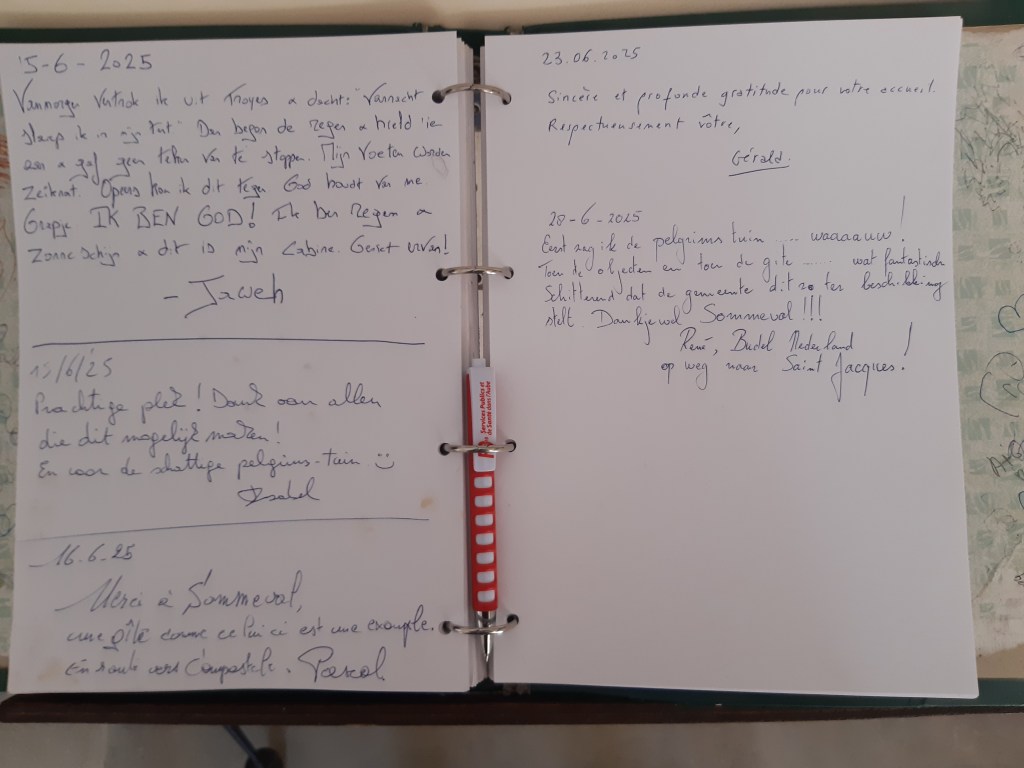 5-6-2025
Vanmorgen vertrok ik uit Troyes & dacht: "Vannacht
slaap ik in mijn tent" Dan begon de regen & hield nie
een & gaf geen teken van te stoppen. Mijn voeten worden
zeiknat. Opeens kom ik dit tegen God houdt van me
Grapje IK BEN GOD! Ik ben Regen &
Zonneschijn & dit is mijn Cabine. Geniet ervan!
- Jaweh
/6/'25
Prachtige plek! Dank aan allen
die dit mogelijk maken!
En voor de schattige pelgrims-tuin
Isabel
16.6.25
Merci à Sommeval,
une gîte comme celui ci est une exemple.
En route vers Compostele. Pascal
Services Publics et
de Santé dans l'Aube
23.06.2025
Sincère et profonde gratitude pour votre accueil.
Respectueusement vôtre,
Gérald.
28-6-2025
Eerst zag ik de pelgrims tuin .... waaaauw!
Toen de objecten en toen de gite ...... wat fantastisch
Schitterend dat de gemeente dit zo ter beschikking
stelt. Dankjewel Sommeval!!!
René, Budel Nederland
op weg naar Saint Jacques!